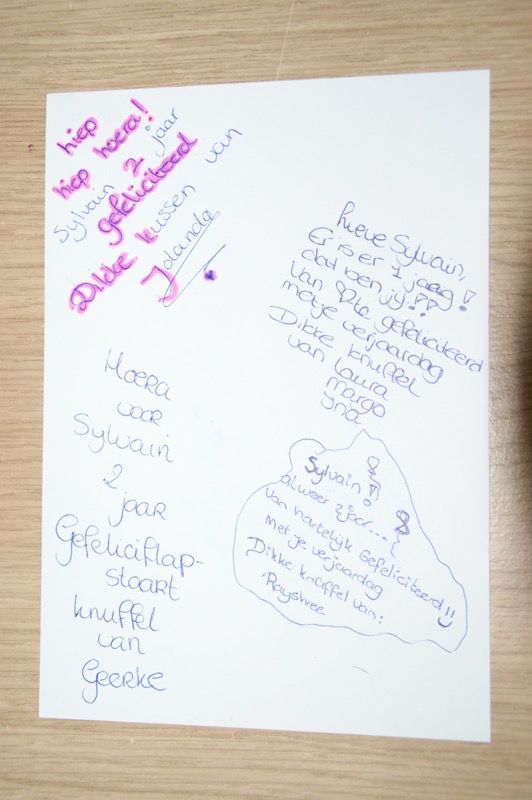 hiep
hiep hoera!
Sylvain 2 jaar
gefeliciteerd
Dikke kussen van
Jolanda
Lieve Sylvain,
Er is er 1 jarig!
dat ben jij!!
Van gefeliciteerd
met je verjaardag
Dikke knuffel
van Laura
Margo
Yna
Hoera
voor
Sylvain
2
jaar
Gefeliciflap-
staart
knuffel
van
Geerke
Sylvain!
alweer 2 jaar...
Van hartelijk Gefeliciteerd!!
Met je verjaardag
Dikke knuffel van:
Rayshree